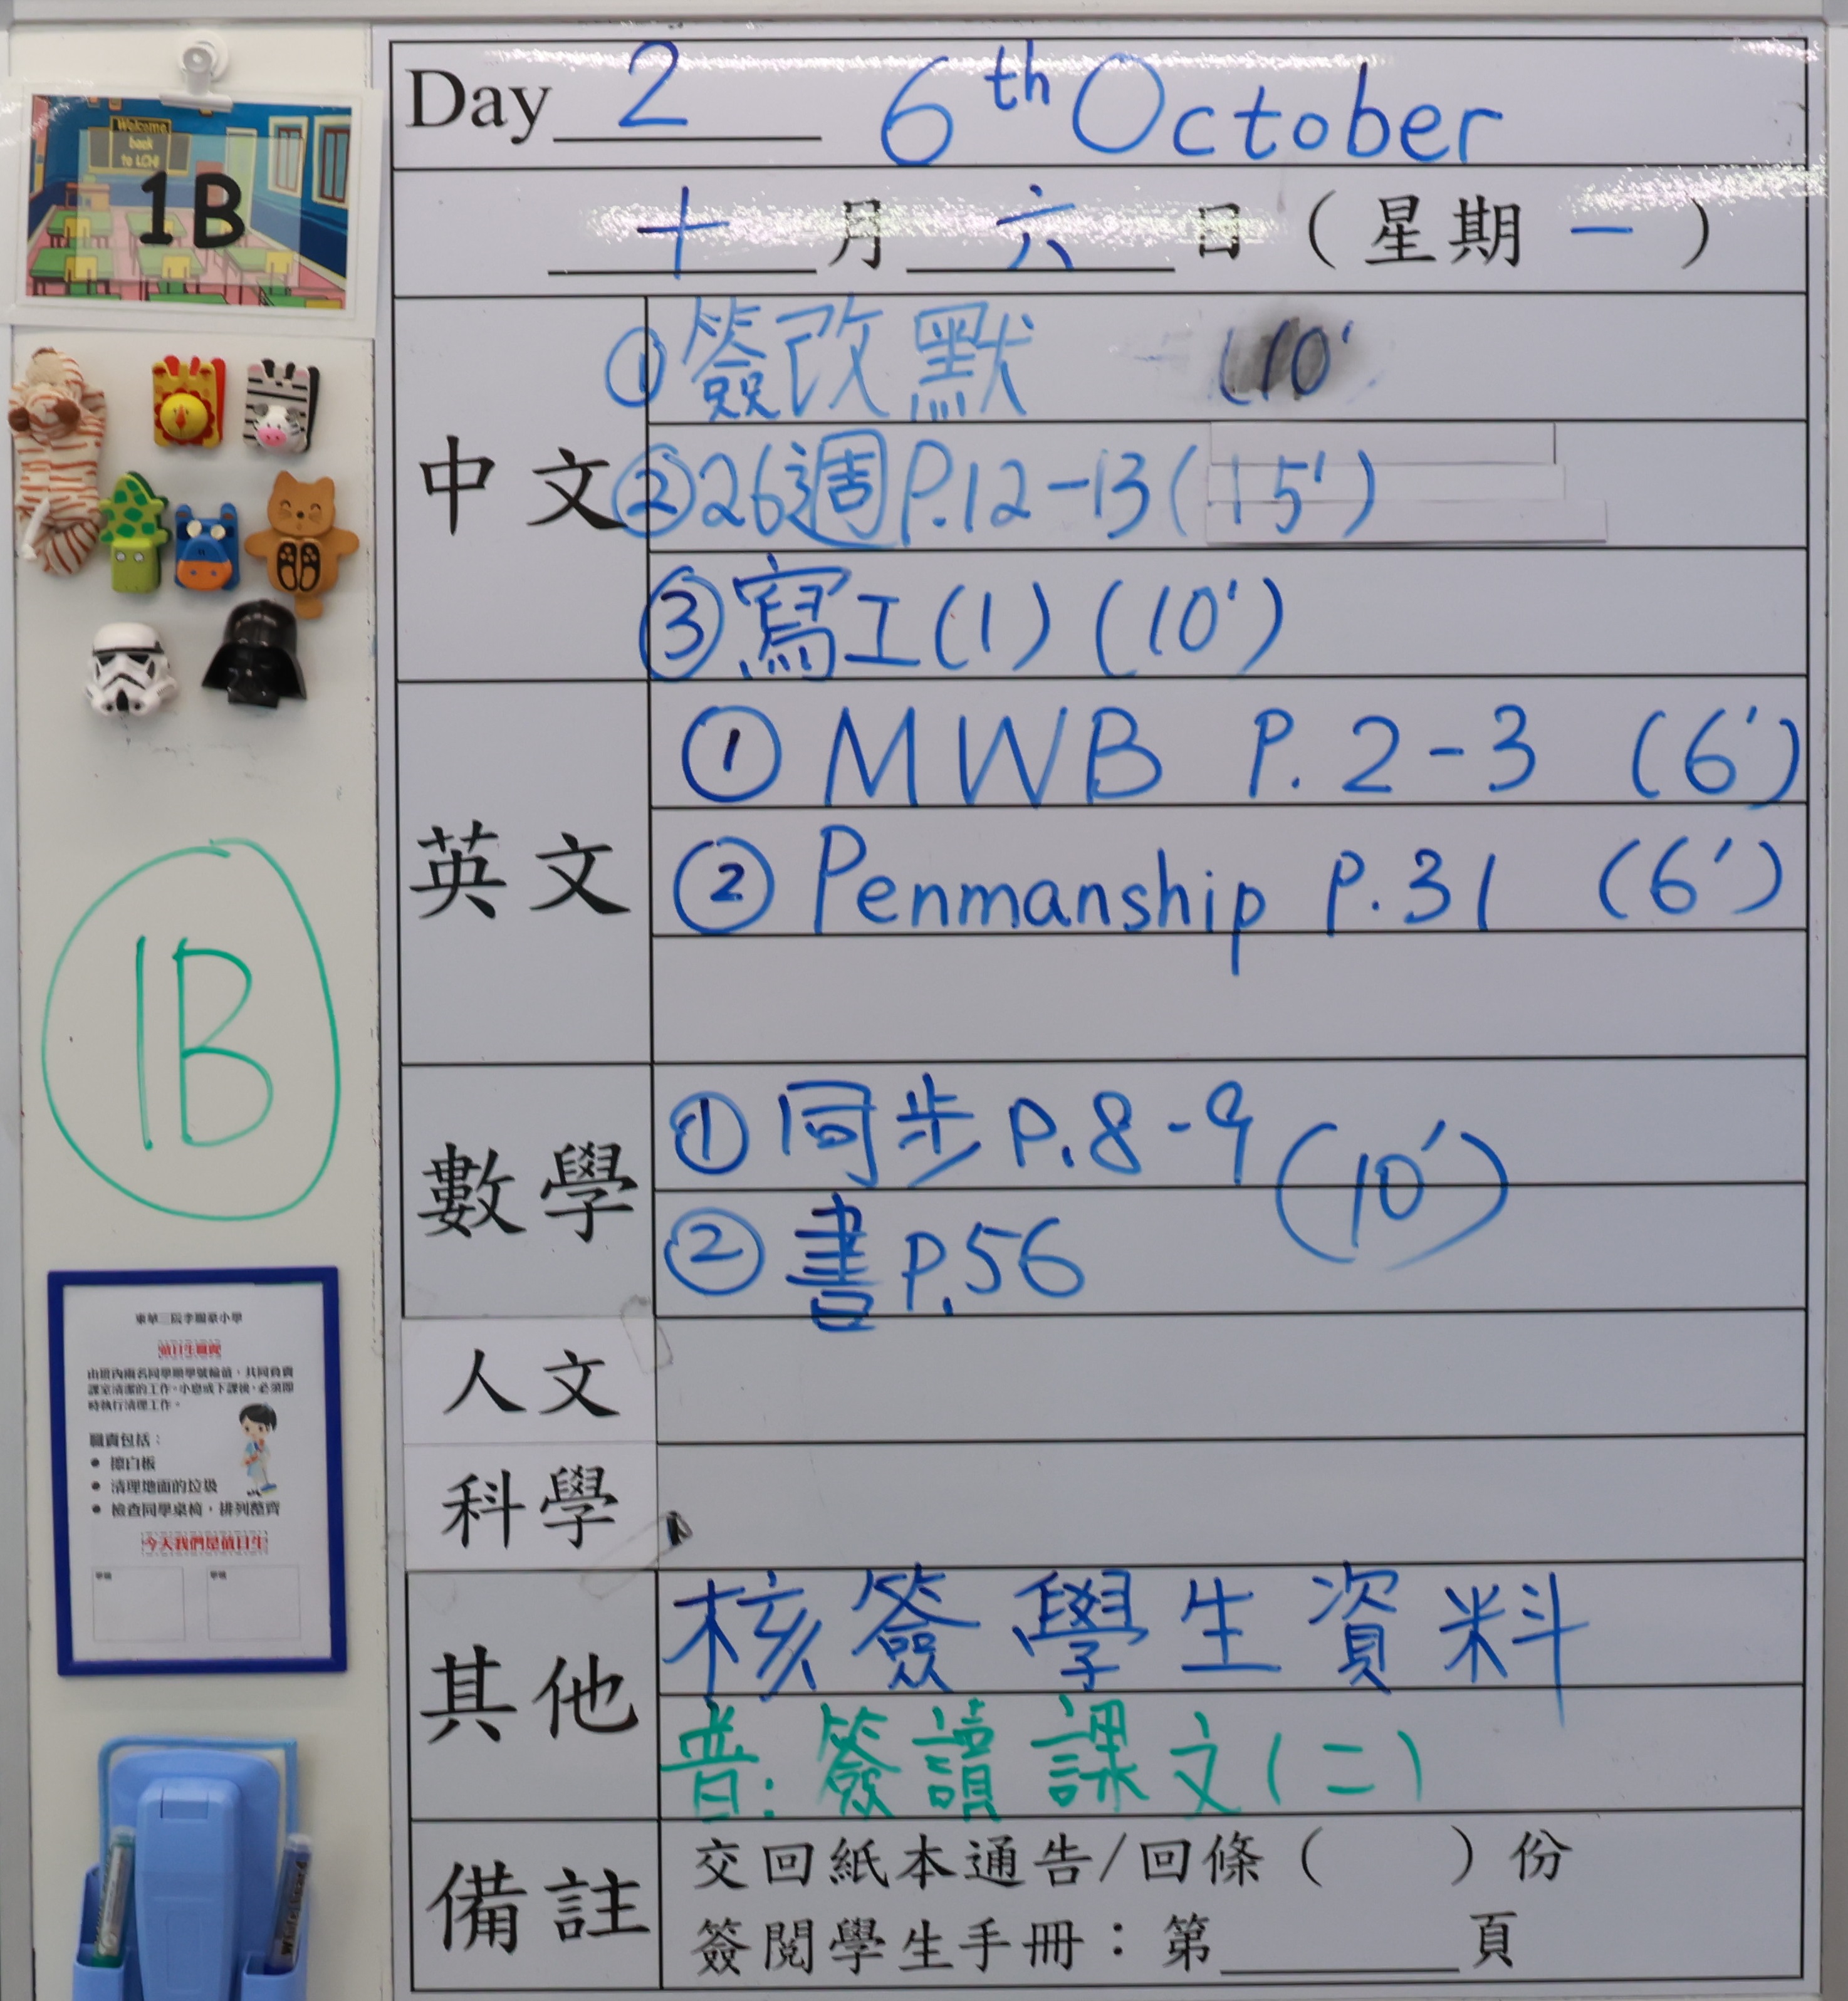 Day 2 6th October
十 月 六 日 ( 星期 一 )
Welcome
back
to LCH!
1B
中文
① 簽改默 (10'
② 26週 P.12-13 (15')
③ 寫工(1) (10')
英文
① MWB P. 2-3 (6')
② Penmanship P. 31 (6')
1B
數學
① 同步 P.8-9 (10')
② 書 P.56
人文
科學
其他
核簽學生資料
普:簽讀課文(二)
備註
交回紙本通告/回條( )份
簽閱學生手冊:第 頁
值日生職責
由班內兩名同學順學號輪值,共同負責
課室清潔的工作。小息或下課後,必須即
時執行清理工作。
職責包括:
• 擦白板
• 清理地面的垃圾
• 檢查同學桌椅,排列整齊
今天我們是值日生